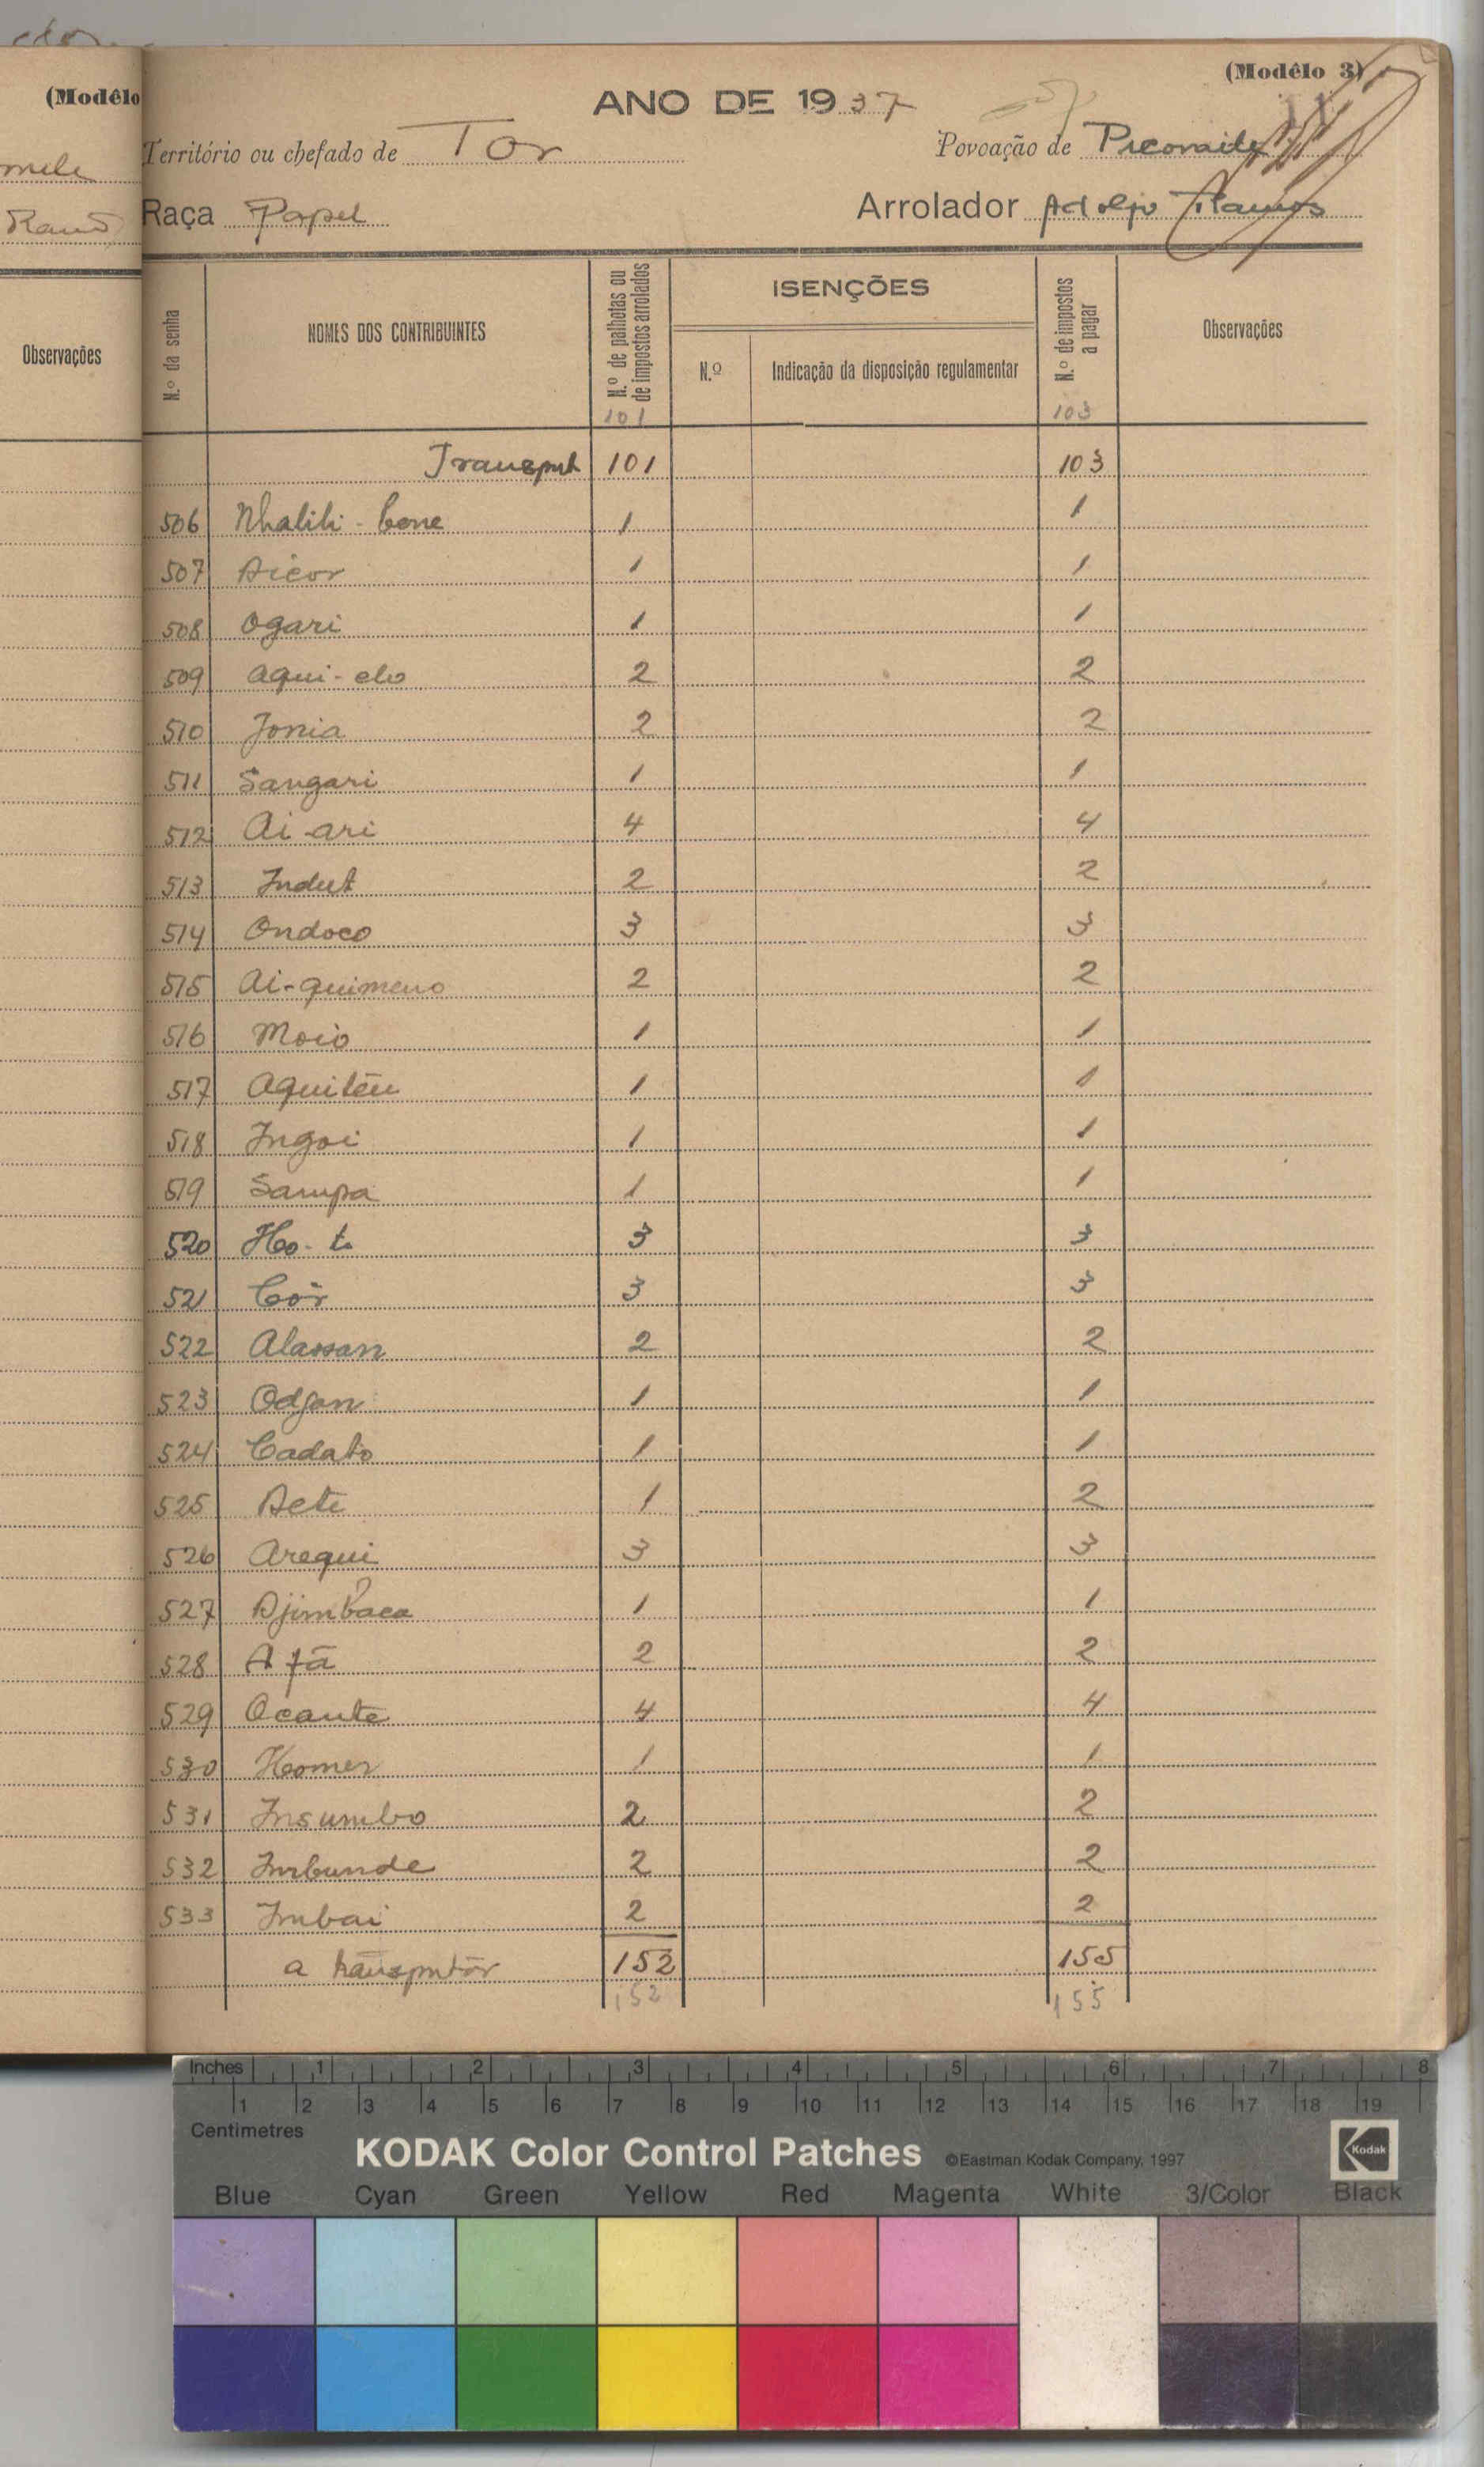 (Modêlo
(Modêlo 3)
ANO DE 1937
Território ou chefado de Tor
Povoação de
Raça Papel
Arrolador Adolfo Ramos
Observações
N.º da senha
NOMES DOS CONTRIBUINTES
N.º de palhotas ou de impostos arrolados
ISENÇÕES
N.º
Indicação da disposição regulamentar
N.º de impostos a pagar
Observações
101 103
Transport 101 103
506 Nhalili-Cone 1 1
507 Aicor 1 1
508 Ogari 1 1
509 Aqui-elo 2 2
510 Jonia 2 2
511 Sangari 1 1
512 Ai-ari 4 4
513 Indut 2 2
514 Ondoco 3 3
515 Ai-quimeno 2 2
516 Moio 1 1
517 Aquitēu 1 1
518 Ingoi 1 1
519 Sampa 1 1
520 3 3
521 Còr 3 3
522 Alassan 2 2
523 Odjan 1 1
524 Cadato 1 1
525 Acte 1 2
526 Arequi 3 3
527 Djimbaca 1 1
528 Afā 2 2
529 Ocante 4 4
530 Homer 1 1
531 Insumbo 2 2
532 Imbunde 2 2
533 Imbai 2 2
a transportar 152 155
152 155
Inches 1 2 3 4 5 6 7 8
1 2 3 4 5 6 7 8 9 10 11 12 13 14 15 16 17 18 19
Centimetres
KODAK Color Control Patches ©Eastman Kodak Company, 1997 Kodak
Blue Cyan Green Yellow Red Magenta White 3/Color Black